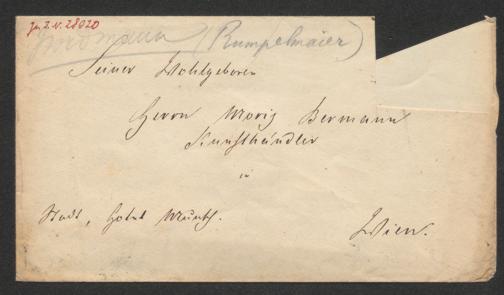 J.N. 28020
(Rumpelmaier)
Seiner Wohlgeboren
Herrn Moriz Bermann
Kunsthändler
in
Stadt, Hotel Munsch.
Wien.